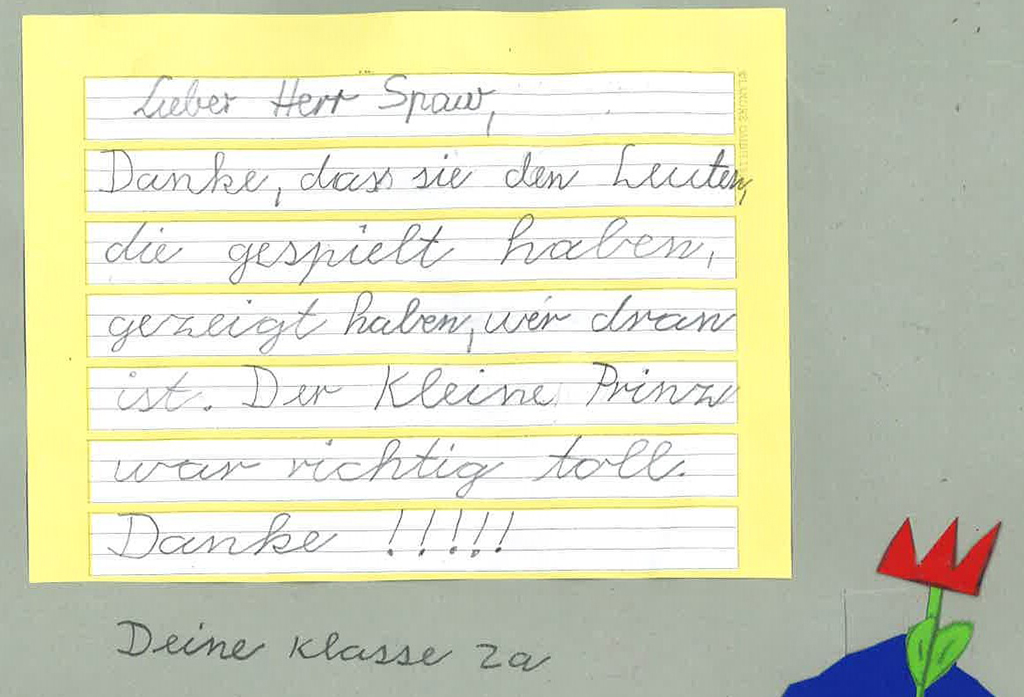 Lieber Herr Spaw,
Danke, dass sie den Leuten,
die gespielt haben,
gezeigt haben, wer dran
ist. Der Kleine Prinz
war richtig toll.
Danke !!!!!
Deine Klasse 2a